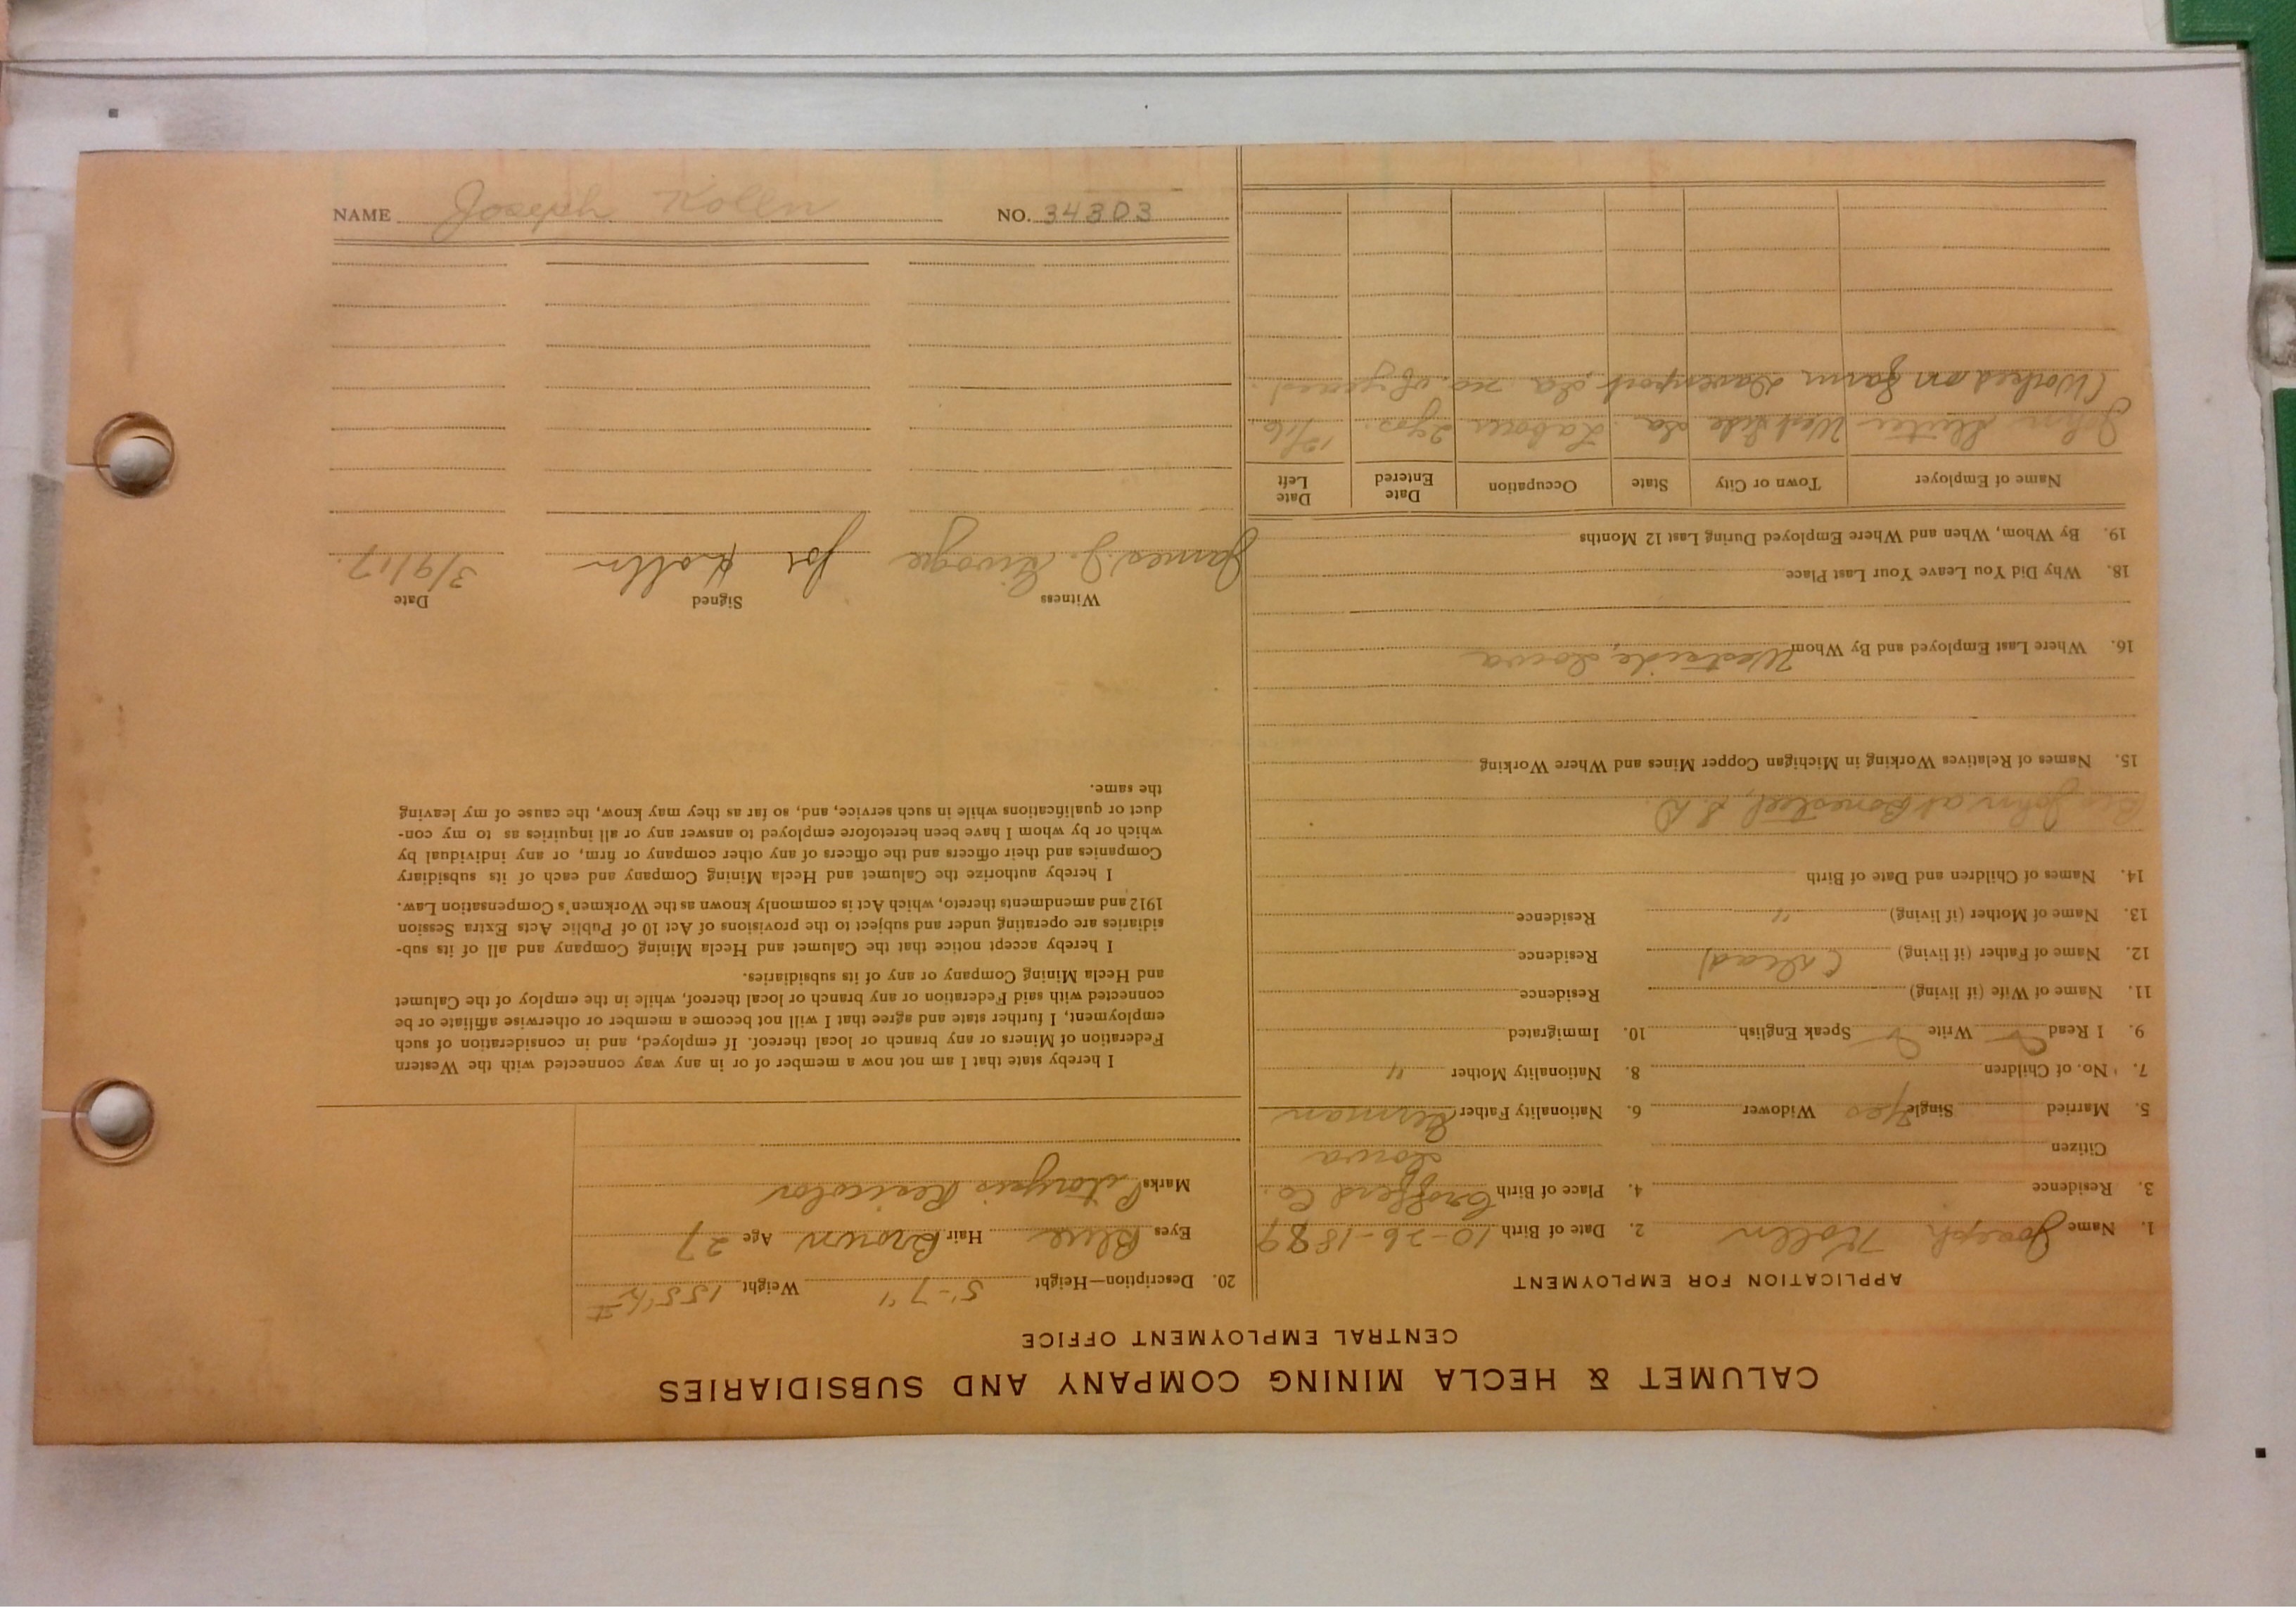 NAME Joseph Kolln NO. 34303
CALUMET & HECLA MINING COMPANY AND SUBSIDIARIES
CENTRAL EMPLOYMENT OFFICE
APPLICATION FOR EMPLOYMENT
1. Name Joseph Kolln 2. Date of Birth 10-26-1889
3. Residence 4. Place of Birth Co.
Citizen Iowa
5. Married Single yes Widower 6. Nationality Father German
7. No. of Children 8. Nationality Mother "
9. I Read Write Speak English 10. Immigrated
11. Name of Wife (if living) Residence
12. Name of Father (if living) (dead) Residence
13. Name of Mother (if living) " Residence
14. Names of Children and Date of Birth
Bro John at Bonesteel, S.D.
15. Names of Relatives Working in Michigan Copper Mines and Where Working
16. Where Last Employed and By Whom Westside, Iowa
18. Why Did You Leave Your Last Place
19. By Whom, When and Where Employed During Last 12 Months
Name of Employer Town or City State Occupation Date Entered Date Left
John West Side Ia. Laborer 2 yrs. 12/16
(Worked on farm Davenport, Ia no. of years)
20. Description—Height 5'-7" Weight 155
Eyes Blue Hair Brown Age 27
Marks
I hereby state that I am not now a member of or in any way connected with the Western
Federation of Miners or any branch or local thereof. If employed, and in consideration of such
employment, I further state and agree that I will not become a member or otherwise affiliate or be
connected with said Federation or any branch or local thereof, while in the employ of the Calumet
and Hecla Mining Company or any of its subsidiaries.
I hereby accept notice that the Calumet and Hecla Mining Company and all of its sub-
sidiaries are operating under and subject to the provisions of Act 10 of Public Acts Extra Session
1912 and amendments thereto, which Act is commonly known as the Workmen's Compensation Law.
I hereby authorize the Calumet and Hecla Mining Company and each of its subsidiary
Companies and their officers and the officers of any other company or firm, or any individual by
which or by whom I have been heretofore employed to answer any or all inquiries as to my con-
duct or qualifications while in such service, and, so far as they may know, the cause of my leaving
the same.
Witness Signed Date
James J. Joe Kolln 3/9/17.